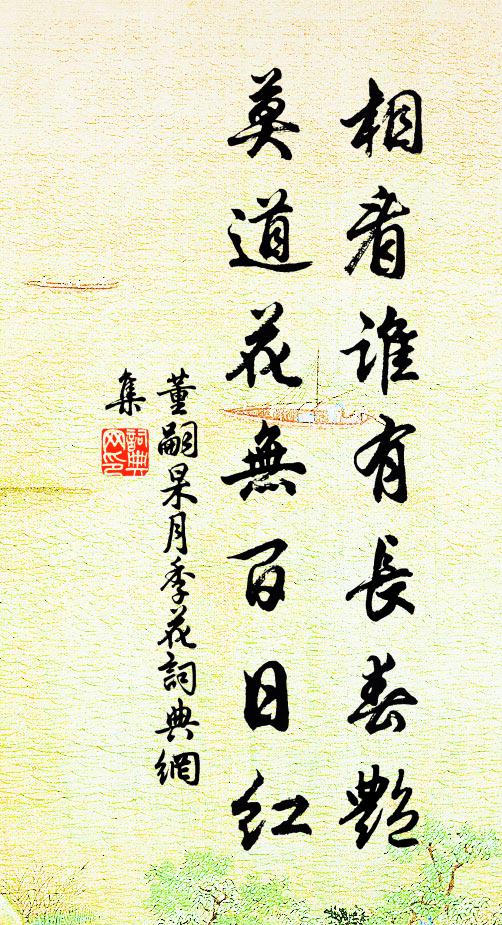 相看誰有長春艷
莫道花無百日紅
董嗣杲月季花詞典網
集
詞典
网印